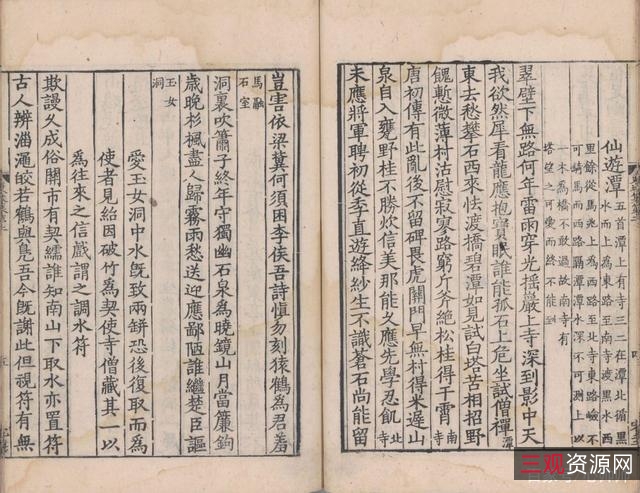 仙遊潭
五首潭上有寺三二在潭北循黑
水而上為東路至南寺渡黑水西
里餘從馬北上為西路至北寺東路險不
可騎馬而西路隔潭潭水深不可測上以
一木為橋不敢過故南寺有
塔望之可愛而終不能到
翠壁下無路何年雷雨穿光摇巖上寺深到影中天
我欲然犀看龍應抱寶眠誰能孤石上危坐試僧禪潭
東去愁攀石西來怯渡橋碧潭如見試白塔苦相招野
餽慙微薄村沽慰寂寥路窮斤斧絶松桂得干霄南寺
唐初傳有此亂後不留碑畏虎關門早無村得米遲山
泉自入甕野桂不勝炊信美那能久應先學忍飢北寺
未應將軍聘初從季直遊絳紗生不識蒼石尚能留
豈害依梁冀何須困李侯吾詩慎勿刻猿鶴為君羞
馬融
石室
洞裏吹簫子終年守獨幽石泉為曉鏡山月當簾鉤
歲晚杉楓盡人歸霧雨愁送迎應鄙陋誰繼楚臣謳
玉女
洞
愛玉女洞中水既致兩缾恐後復取而為
使者見紿因破竹為契使寺僧藏其一以
為往來之信戲謂之調水符
欺謾久成俗關市有契繻誰知南山下取水亦置符
古人辨淄澠皎若鶴與鳧吾今既謝此但視符有無
三观资源网